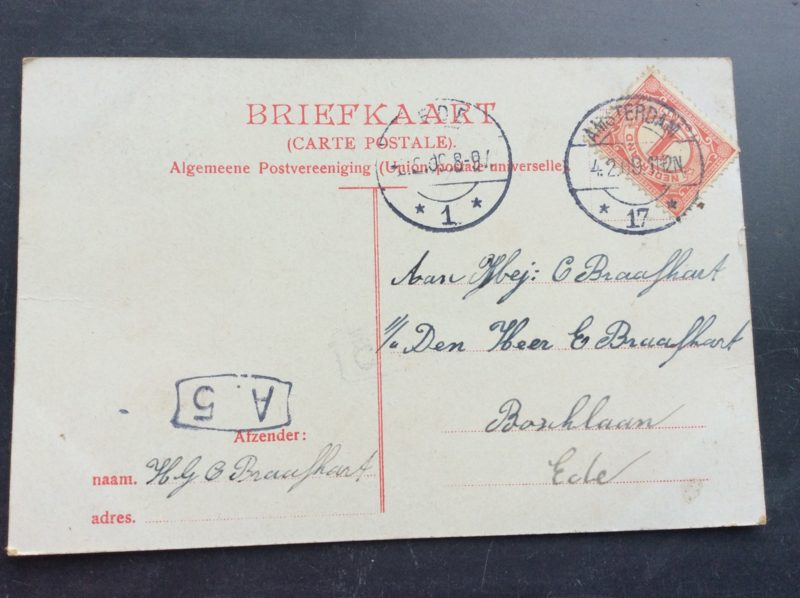 BRIEFKAART
(CARTE POSTALE).
Algemeene Postvereeniging (Union postale universelle)
EDE
8-9
* 1 *
AMSTERDAM
4.2
* 17 *
1
NEDERLAND
Aan Mej: C Braafhart
p/a Den Heer E Braafhart
Boschlaan
Ede
A. 5
Afzender:
naam. H G C Braafhart
adres.